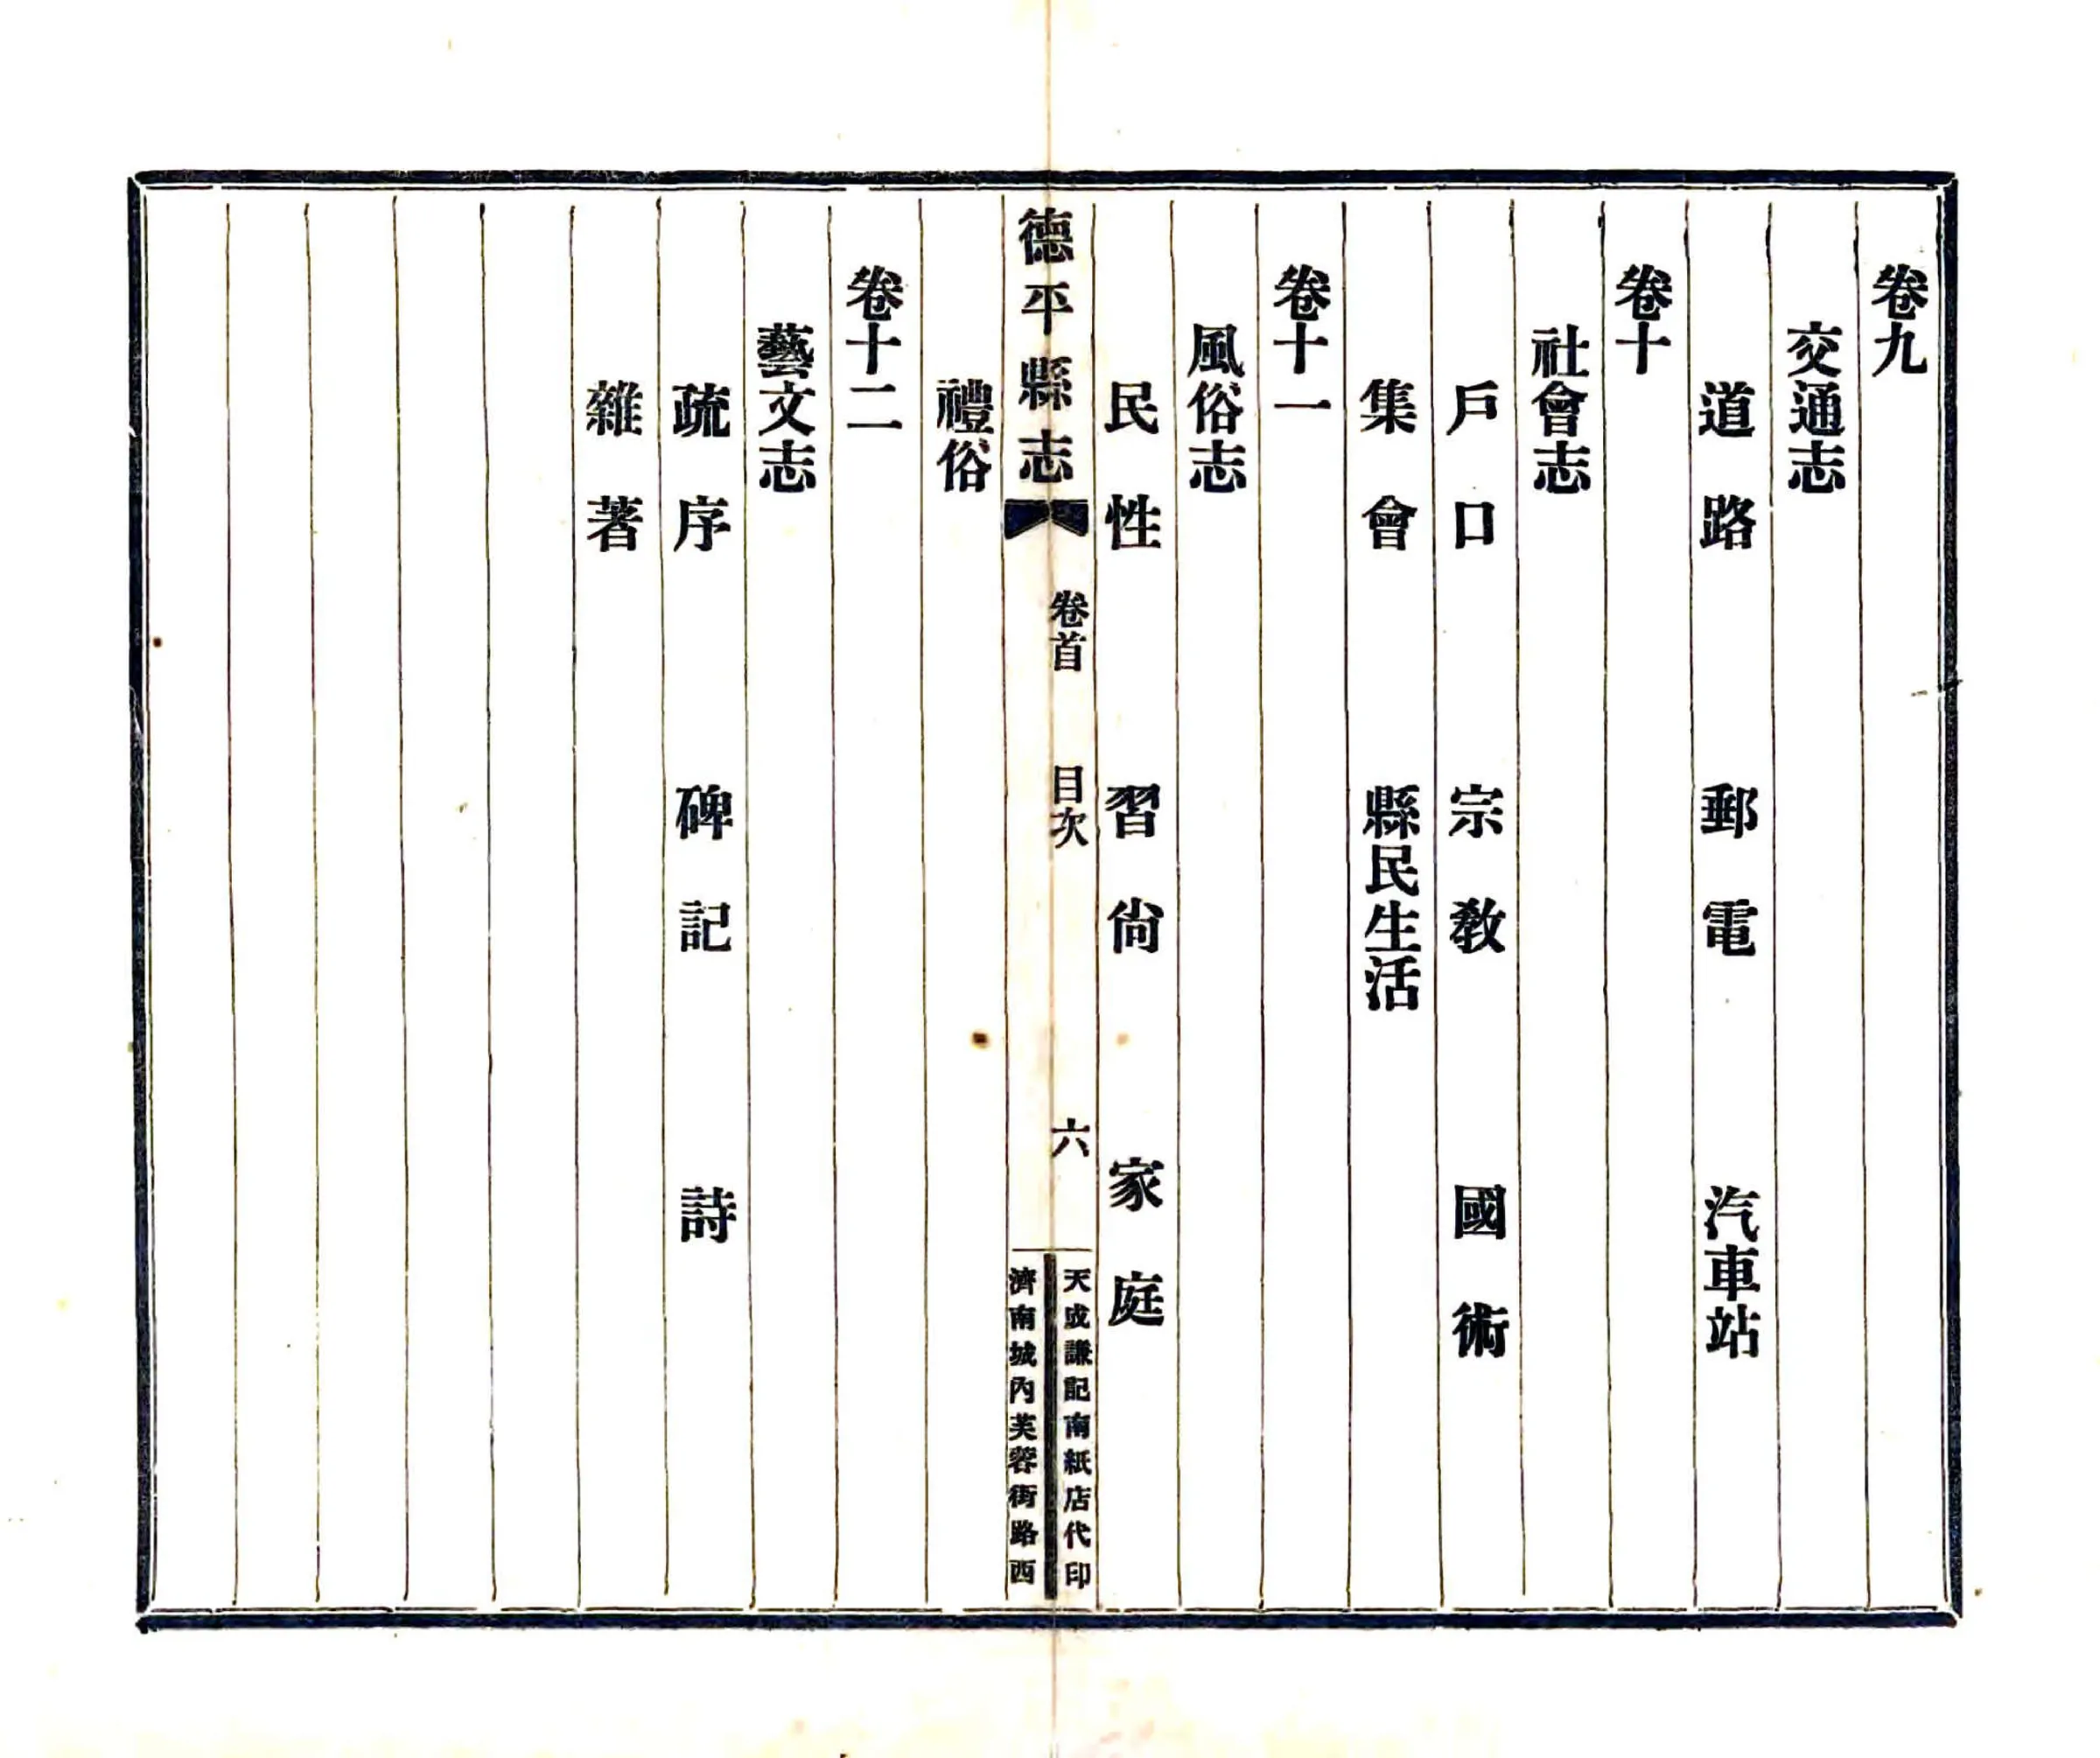 卷九
交通志
道路　郵電　汽車站
卷十
社會志
戶口　宗教　國術
集會　縣民生活
卷十一
風俗志
民性　習尙　家庭
德平縣志　卷首　目次　六
天成謙記南紙店代印
濟南城內芙蓉街路西
禮俗
卷十二
藝文志
疏序　碑記　詩
雜著